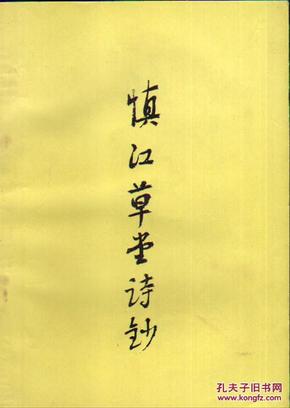 慎江草堂诗钞
孔夫子旧书网
www.kongfz.com